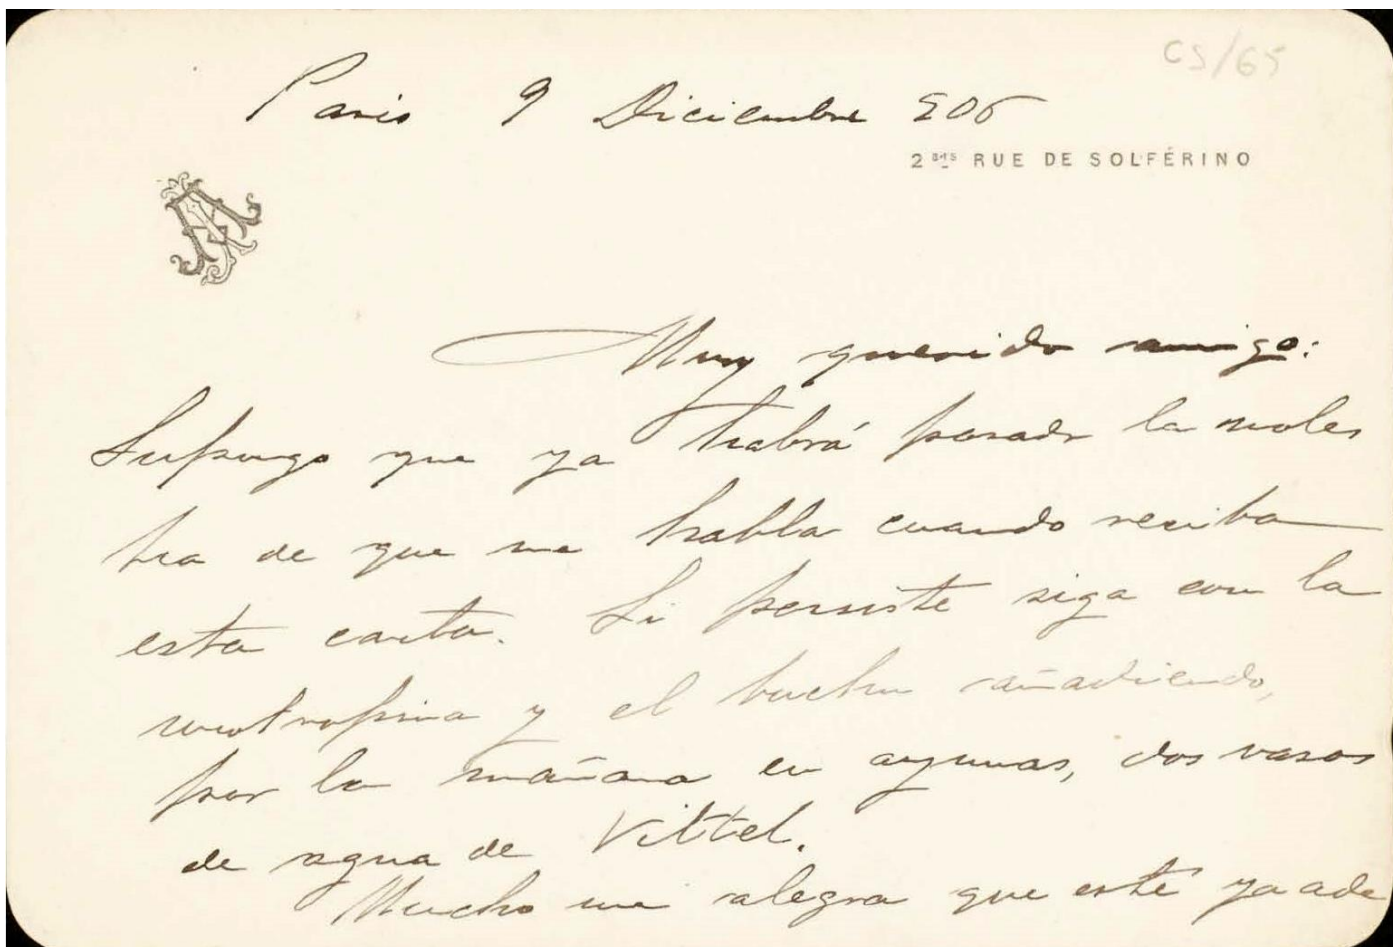 CS/65
Paris 9 Diciembre 906
2 BIS RUE DE SOLFÉRINO
Muy querido amigo:
Supongo que ya habrá pasado la moles
tia de que me habla cuando reciba
esta carta. Si persiste siga con la
urotropina y el buchu añadiendo,
por la mañana en ayunas, dos vasos
de agua de Vittel.
Mucho me alegra que esté ya ade